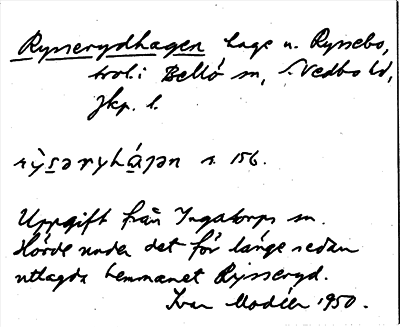 Rysserydhagen hage u. Ryssebo,
trol. i Bellö sn, S. Vedbo hd,
Jkp. l.
rỳsəryhágən s. 156.
Uppgift från Ingatorps sn.
Hörde under det för länge sedan
utlagda hemmanet Rysseryd.
Ivar Modéer 1950.